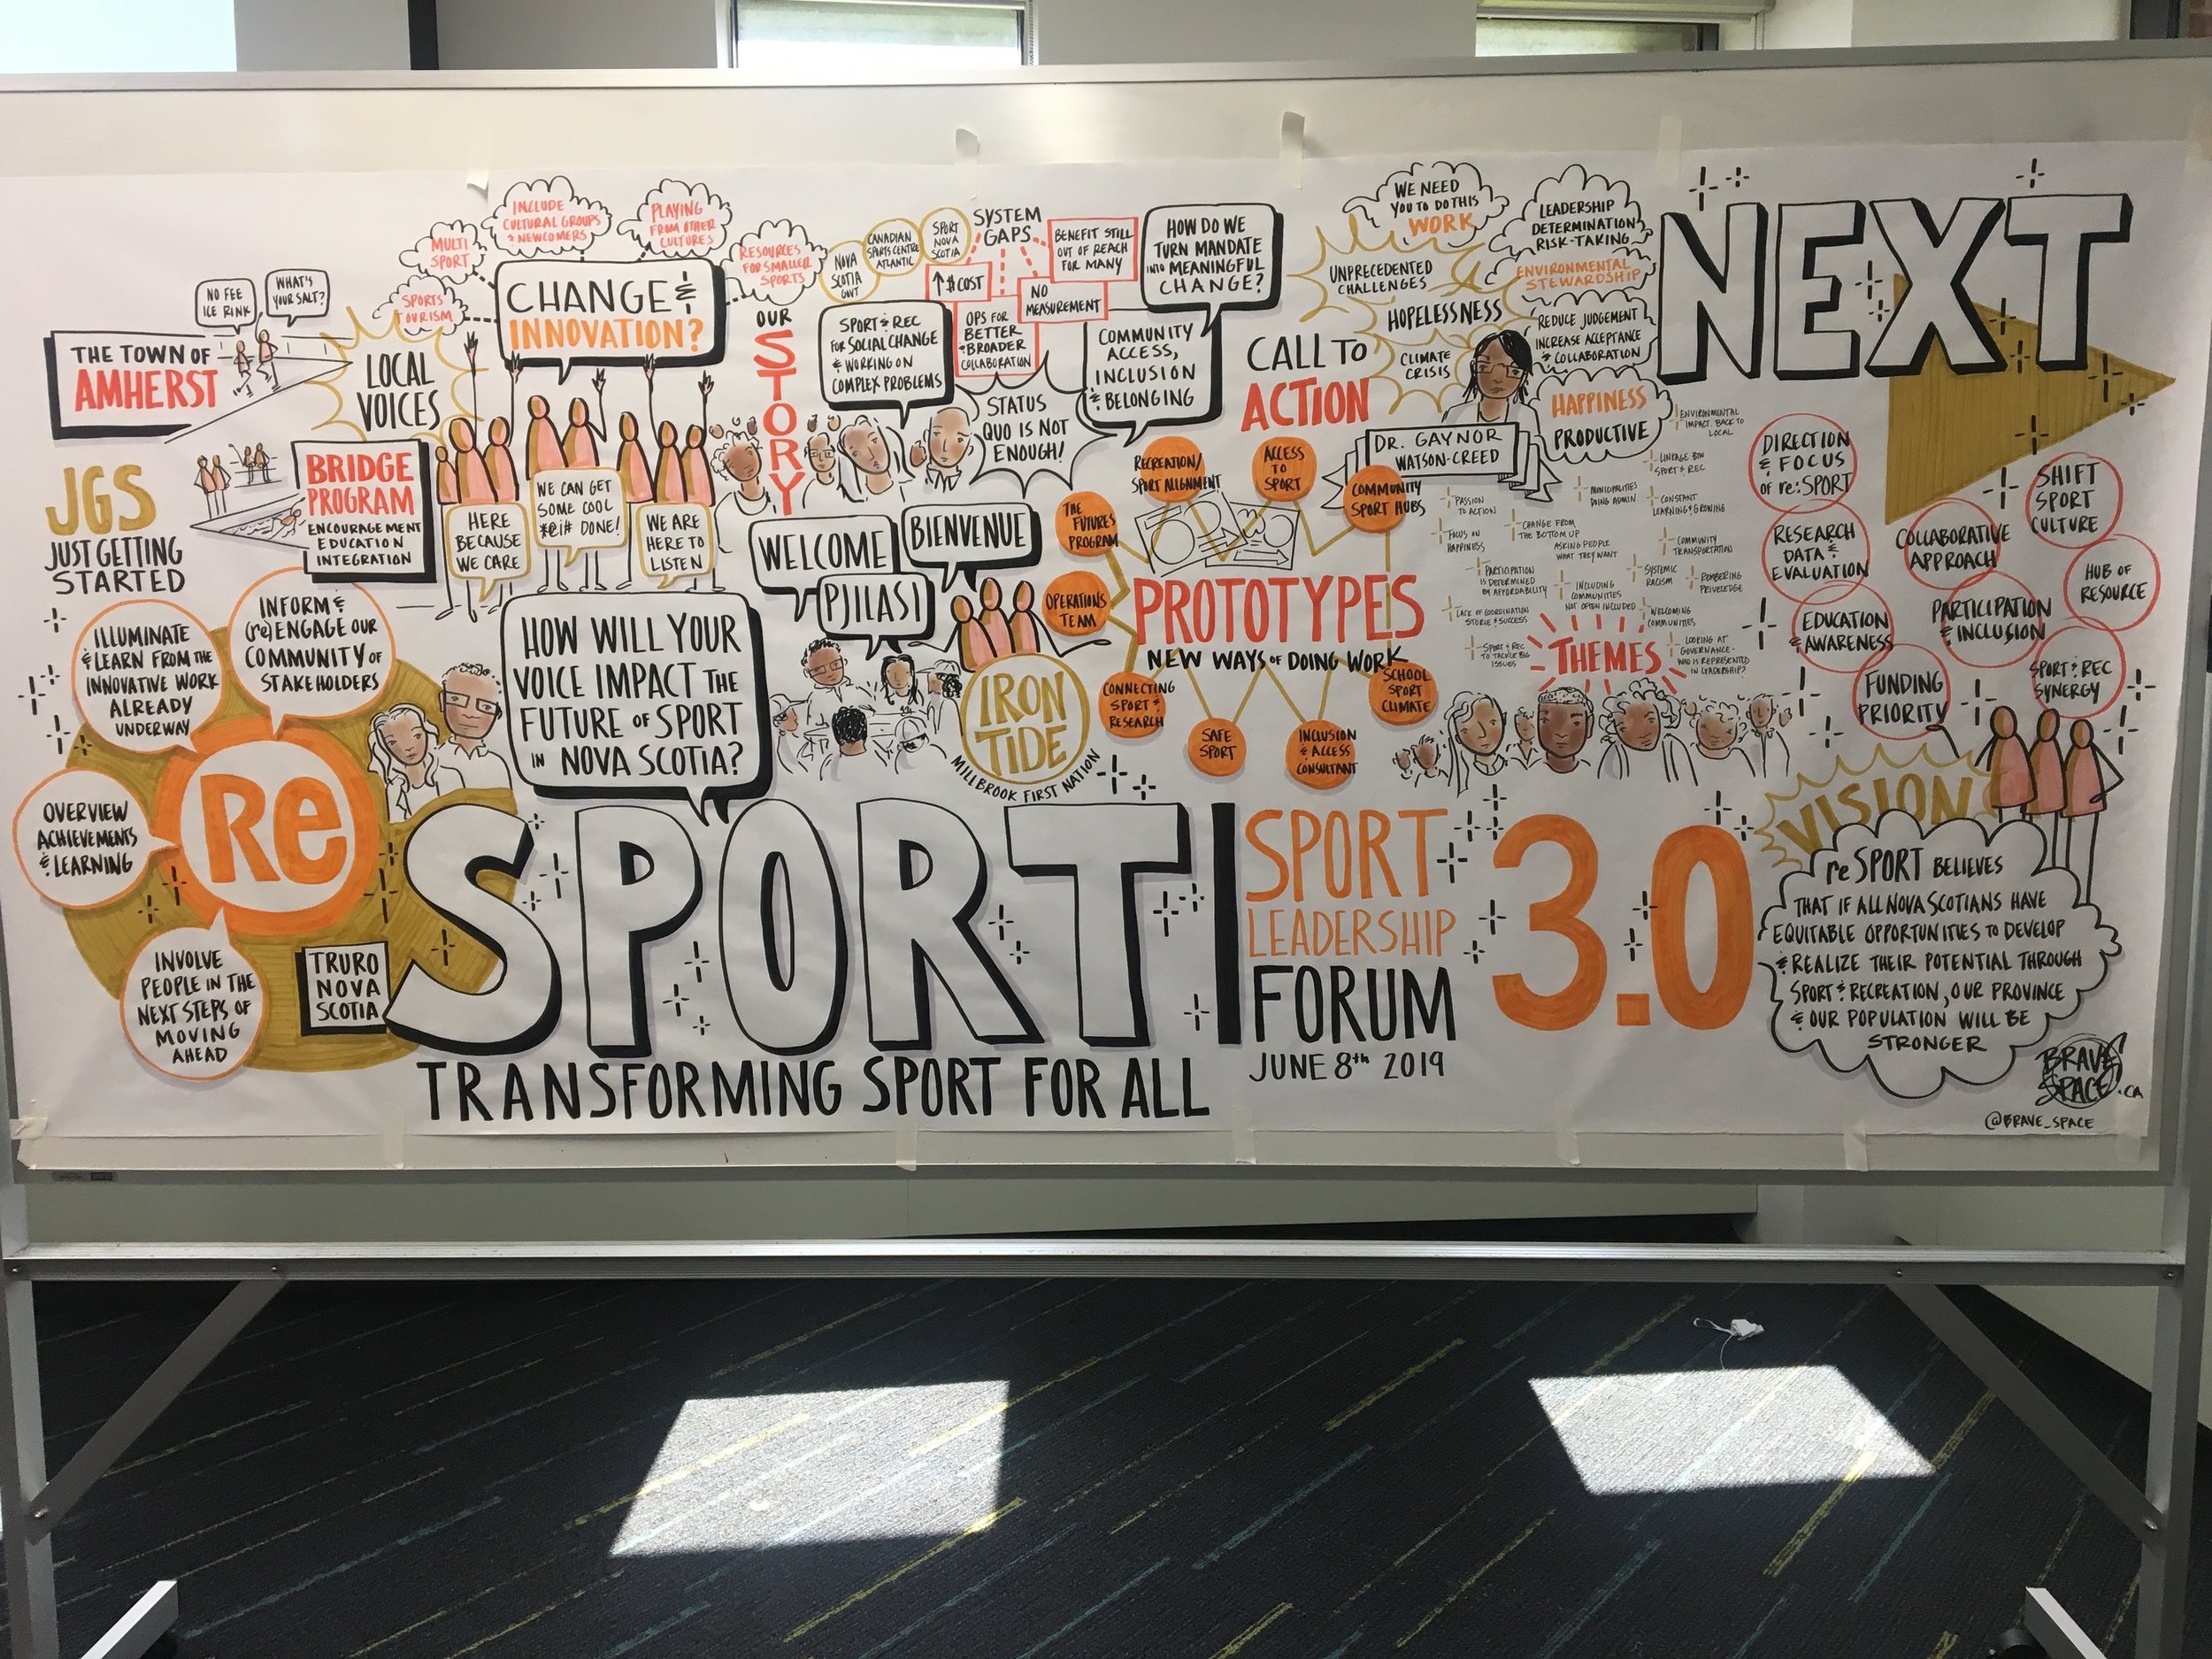 THE TOWN OF
AMHERST
NO FEE
ICE RINK
WHAT'S
YOUR SALT?
LOCAL
VOICES
JGS
JUST GETTING
STARTED
BRIDGE
PROGRAM
ENCOURAGEMENT
EDUCATION
INTEGRATION
SPORTS
TOURISM
MULTI
SPORT
INCLUDE
CULTURAL GROUPS
& NEWCOMERS
PLAYING
FROM OTHER
CULTURES
RESOURCES
FOR SMALLER
SPORTS
CHANGE &
INNOVATION?
HERE
BECAUSE
WE CARE
WE CAN GET
SOME COOL
*@!# DONE!
WE ARE
HERE TO
LISTEN
OUR
STORY
NOVA
SCOTIA
GOVT
CANADIAN
SPORTS CENTRE
ATLANTIC
SPORT
NOVA
SCOTIA
SYSTEM
GAPS
↑$ COST
BENEFIT STILL
OUT OF REACH
FOR MANY
NO
MEASUREMENT
OPS FOR
BETTER
& BROADER
COLLABORATION
SPORT & REC
FOR SOCIAL CHANGE
& WORKING ON
COMPLEX PROBLEMS
STATUS
QUO IS NOT
ENOUGH!
HOW DO WE
TURN MANDATE
INTO MEANINGFUL
CHANGE?
COMMUNITY
ACCESS,
INCLUSION
& BELONGING
WELCOME
BIENVENUE
PJILASI
IRON
TIDE
MILLBROOK FIRST NATION
HOW WILL YOUR
VOICE IMPACT THE
FUTURE OF SPORT
IN NOVA SCOTIA?
CALL TO
ACTION
WE NEED
YOU TO DO THIS
WORK
UNPRECEDENTED
CHALLENGES
HOPELESSNESS
CLIMATE
CRISIS
LEADERSHIP
DETERMINATION
RISK-TAKING
ENVIRONMENTAL
STEWARDSHIP
REDUCE JUDGEMENT
INCREASE ACCEPTANCE
& COLLABORATION
HAPPINESS
PRODUCTIVE
DR. GAYNOR
WATSON-CREED
RECREATION/
SPORT ALIGNMENT
ACCESS
TO
SPORT
COMMUNITY
SPORT HUBS
THE
FUTURES
PROGRAM
OPERATIONS
TEAM
PROTOTYPES
NEW WAYS OF DOING WORK
CONNECTING
SPORT &
RESEARCH
SAFE
SPORT
INCLUSION
& ACCESS
CONSULTANT
SCHOOL
SPORT
CLIMATE
ENVIRONMENTAL
IMPACT. BACK TO
LOCAL
LINKAGE BTW
SPORT & REC
PASSION
TO ACTION
MUNICIPALITIES
DOING ADMIN
CONSTANT
LEARNING & GROWING
FOCUS ON
HAPPINESS
CHANGE FROM
THE BOTTOM UP
ASKING PEOPLE
WHAT THEY WANT
COMMUNITY
TRANSPORTATION
PARTICIPATION
IS DETERMINED
BY AFFORDABILITY
INCLUDING
COMMUNITIES
NOT OFTEN INCLUDED
SYSTEMIC
RACISM
LACK OF COORDINATION
WELCOMING
COMMUNITIES
SPORT & REC
TO TACKLE BIG
ISSUES
LOOKING AT
GOVERNANCE-
WHO IS REPRESENTED
IN LEADERSHIP?
THEMES
NEXT
DIRECTION
& FOCUS
OF re:SPORT
RESEARCH
DATA &
EVALUATION
EDUCATION
& AWARENESS
FUNDING
PRIORITY
COLLABORATIVE
APPROACH
PARTICIPATION
& INCLUSION
SHIFT
SPORT
CULTURE
HUB OF
RESOURCE
SPORT & REC
SYNERGY
ILLUMINATE
& LEARN FROM THE
INNOVATIVE WORK
ALREADY
UNDERWAY
INFORM &
(re)ENGAGE OUR
COMMUNITY OF
STAKEHOLDERS
OVERVIEW
ACHIEVEMENTS
& LEARNING
INVOLVE
PEOPLE IN THE
NEXT STEPS OF
MOVING
AHEAD
Re
SPORT
TRURO
NOVA
SCOTIA
TRANSFORMING SPORT FOR ALL
SPORT
LEADERSHIP
FORUM
JUNE 8th 2019
3.0
VISION
reSPORT BELIEVES
THAT IF ALL NOVA SCOTIANS HAVE
EQUITABLE OPPORTUNITIES TO DEVELOP
& REALIZE THEIR POTENTIAL THROUGH
SPORT & RECREATION, OUR PROVINCE
& OUR POPULATION WILL BE
STRONGER
BRAVE
SPACE.CA
@BRAVE_SPACE